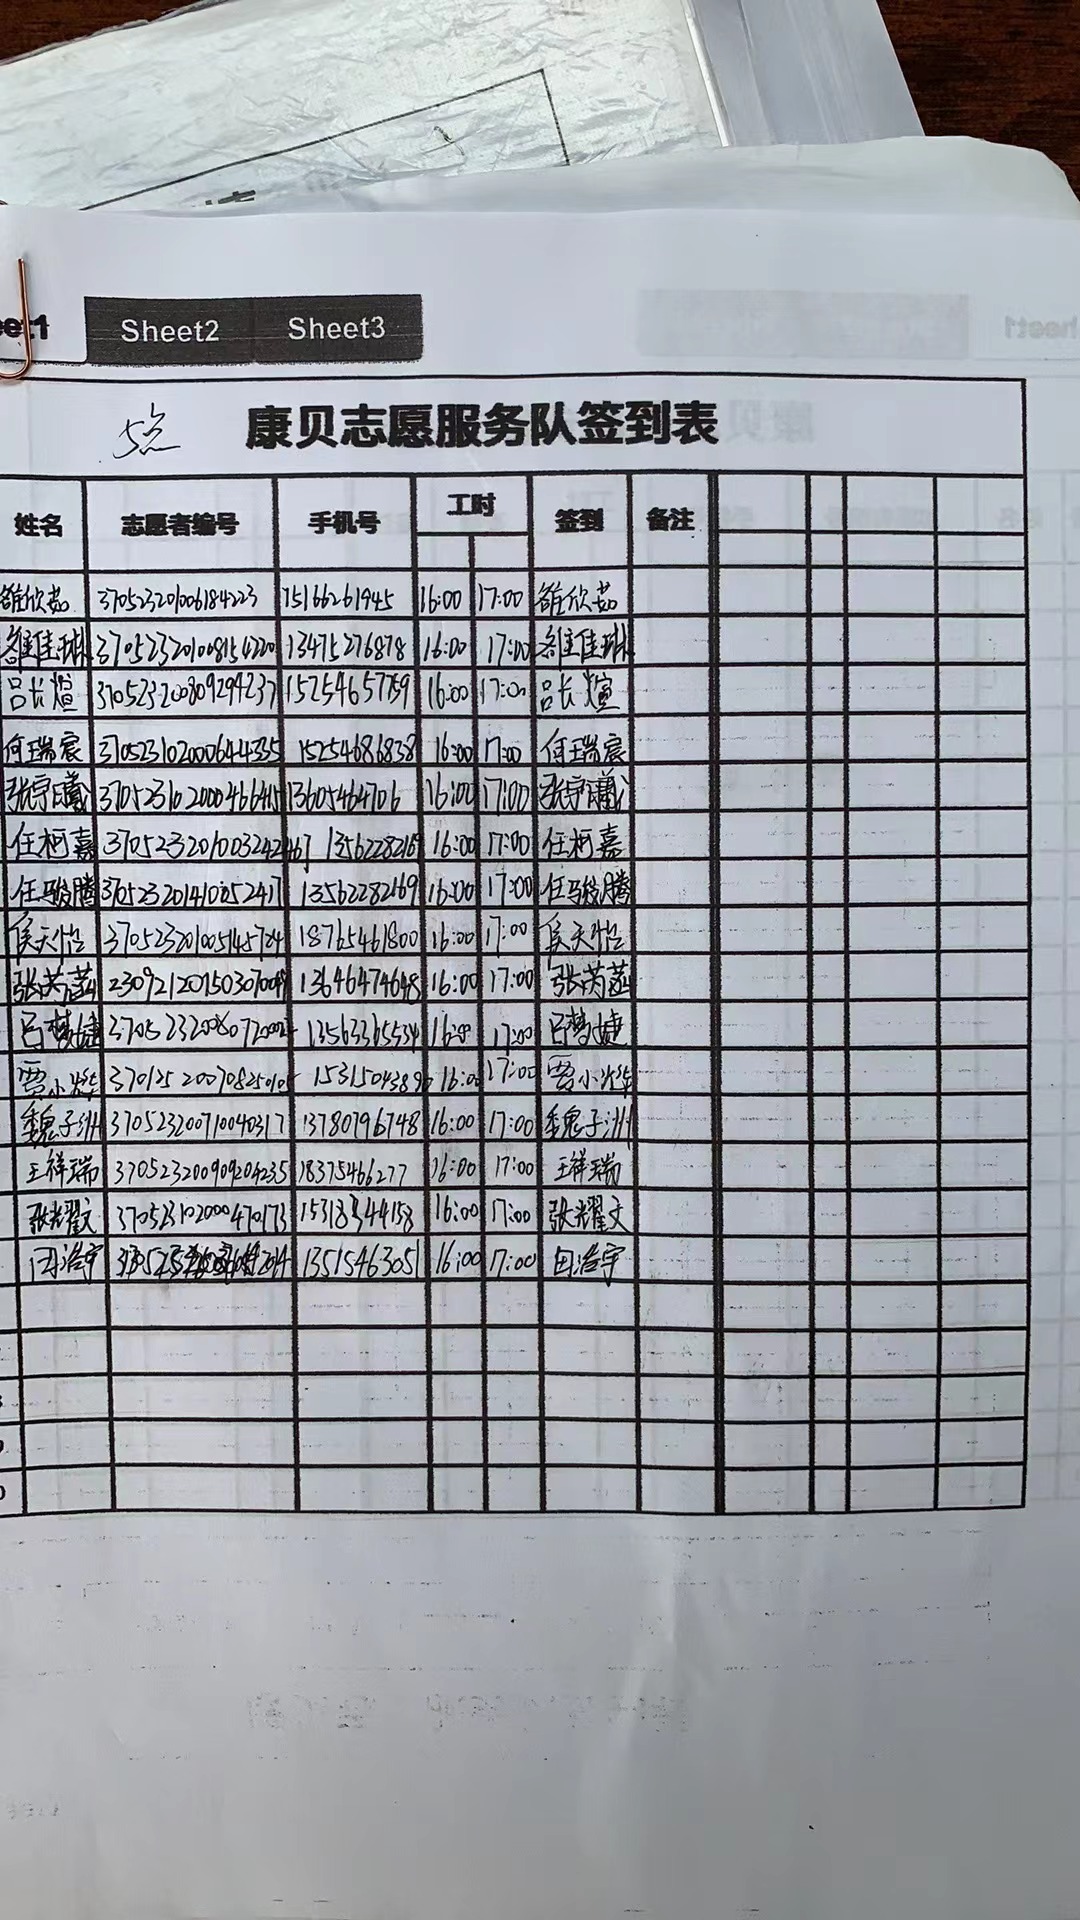 Sheet2 Sheet3
5点 康贝志愿服务队签到表
姓名 志愿者编号 手机号 工时 签到 备注
雒欣茹 370523201006184223 15166261945 16:00 17:00 雒欣茹
雒佳琳 370523201008154220 13475276878 16:00 17:00 雒佳琳
吕长煊 370523200809294237 15254657759 16:00 17:00 吕长煊
何瑞宸 3705231020000644335 15254686838 16:00 17:00 何瑞宸
张宇曦 3705231020004666415 13605464706 16:00 17:00 张宇曦
任柯嘉 13562282169 16:00 17:00 任柯嘉
任骏腾 13562282169 16:00 17:00 任骏腾
侯天怡 370523201005145724 18765461800 16:00 17:00 侯天怡
张芮菡 13646474648 16:00 17:00 张芮菡
吕梦婕 13563365534 17:00 吕梦婕
贾小烨 16:00 17:00 贾小烨
魏子洲 370523200710040317 13780796748 16:00 17:00 魏子洲
王祥瑞 370523200909204235 18375466277 16:00 17:00 王祥瑞
张耀文 3705231020000470173 15318344158 16:00 17:00 张耀文
田浩宇 13515463051 16:00 17:00 田浩宇